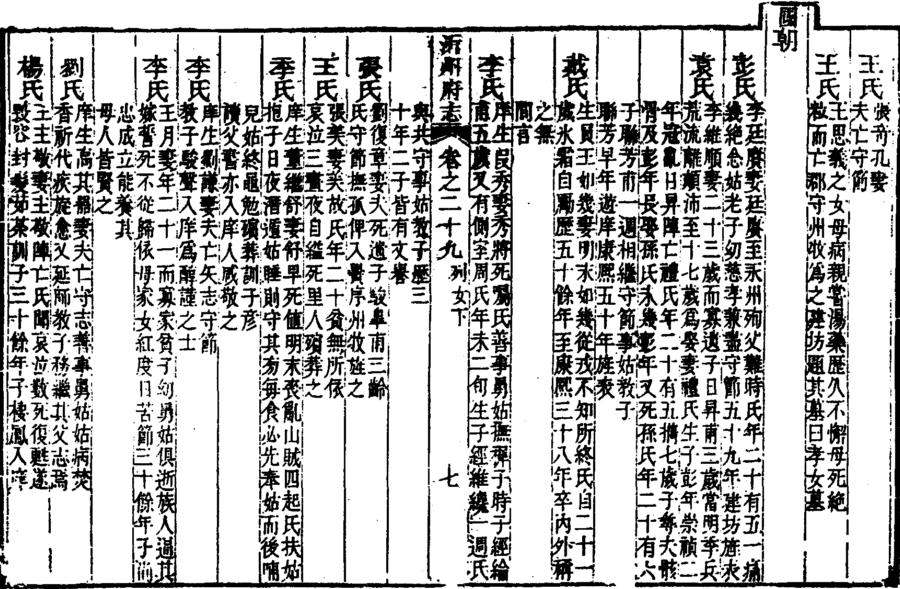 王氏張奇孔妻
夫亡守節
王氏王思義之女母病親嘗湯藥歷久不懈母死絶
粒而亡郡守州牧為之建坊題其墓曰孝女墓
國朝
彭氏李廷賡妻廷賡至永州殉父難時氏年二十有五一痛
幾絶念姑老子幼慈孝兼盡守節五十九年建坊旌表
袁氏李維順妻二十三歲而寡遺子日昇甫三歲當明季兵
荒流離顛沛至十七歲為娶妻禮氏生子彭年崇禎二
年寇亂日昇陣亡禮氏年二十有五攜七歲子尋夫骸
骨及彭年長娶孫氏未幾彭年又死孫氏年二十有六
子聯芳甫一週相繼守節事姑教子
聯芳早年遊庠康熙五十年旌表
戴氏生員王如幾妻明末如幾從戎不知所終氏自二十一
歲氷霜自勵歷五十餘年至康熙三十八年卒內外稱
之無
間言
李氏庠生段秀妻秀將死囑氏善事舅姑撫彈子時子經綸
甫五歲又有側室周氏年未二旬生子經維纔一週氏
與共守事姑教子歷三
十年二子皆有文譽
沂州府志 卷之二十九 列女下 七
張氏劉復章妻夫死遺子毅皐甫三齡
氏守節撫孤俾入黌序州牧旌之
王氏張美妻美故氏年二十貧無所依
哀泣三晝夜自縊死里人殯葬之
季氏庠生董繼舒妻舒早死值明末喪亂山賊四起氏扶姑
抱子日夜潛遁姑睡則守其旁每食必先奉姑而後哺
兒姑終黽勉殯葬訓子彥
讀父書亦入庠人咸敬之
李氏庠生劉謙妻夫亡矢志守節
教子駿聲入庠為醇謹之士
李氏王月妻年二十一而寡家貧子幼舅姑俱逝族人逼其
嫁誓死不從歸依母家女紅度日苦節三十餘年子前
忠成立能養其
母人皆賢之
劉氏庠生高其爵妻夫亡守志善事舅姑姑病焚
香祈代疾旋愈又延師教子務繼其父志焉
楊氏王主敬妻主敬陣亡氏聞哀泣數死復甦遂
毀容封髮姑茶訓子三十餘年子棲鳳入庠